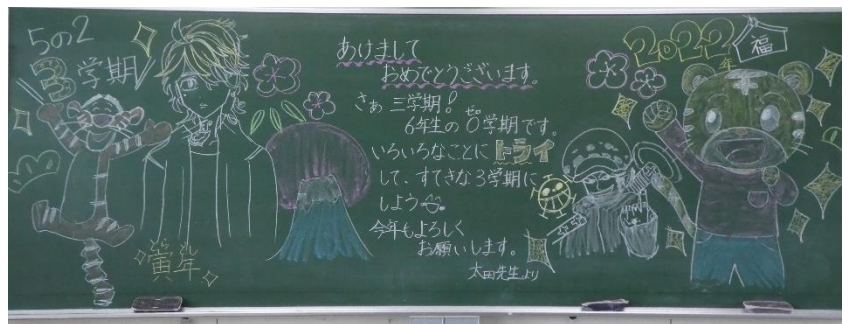 5の2
3学期
あけまして
おめでとうございます。
さぁ 三学期!
6年生の0学期です。
ゼロ
いろいろなことにトライ
して、すてきな3学期に
しよう
今年もよろしく
お願いします。
大田先生より
とら どし
寅年
2022年
福